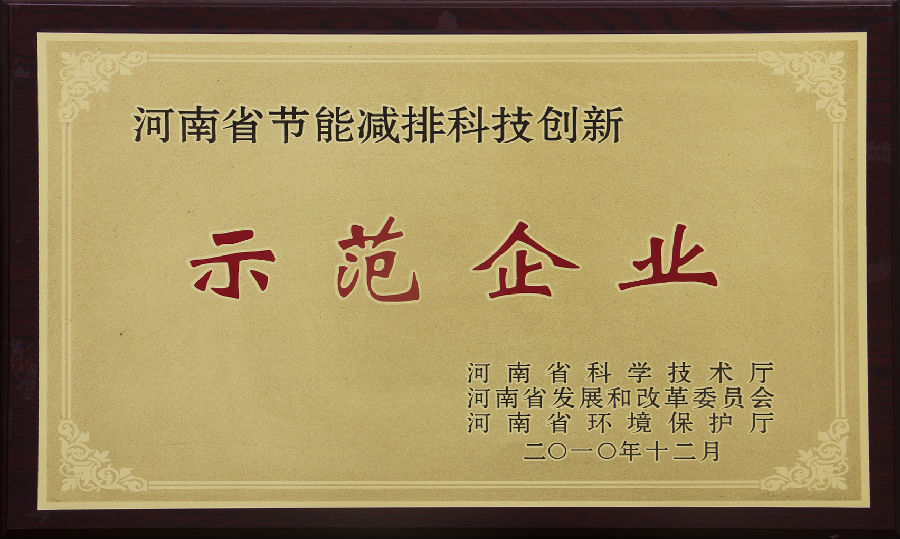 河南省节能减排科技创新
示范企业
河南省科学技术厅
河南省发展和改革委员会
河南省环境保护厅
二〇一〇年十二月